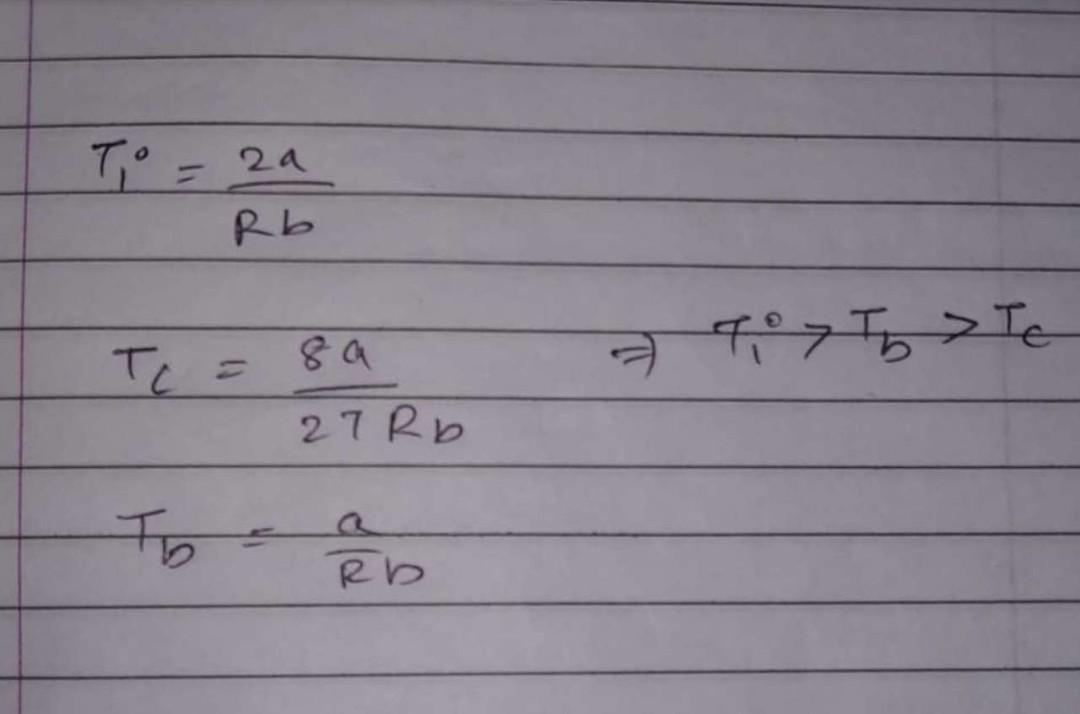 Ti = 2a / Rb
Tc = 8a / 27 Rb ⇒ Ti > Tb > Tc
Tb = a / Rb